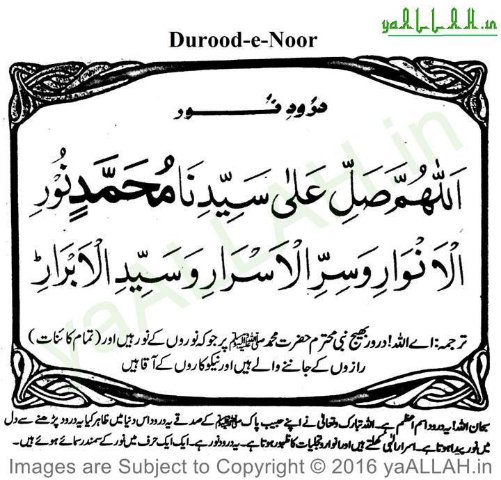 yaALLAH.in
Durood-e-Noor
درودِ نُور
اَللّٰهُمَّ صَلِّ عَلٰى سَيِّدِنَا مُحَمَّدٍ نُوْرِ
الْاَنْوَارِ وَسِرِّ الْاَسْرَارِ وَسَيِّدِ الْاَبْرَارِ
ترجمہ: اے اللہ! درود بھیج نبی محترم حضرت محمد ﷺ پر جو کہ نوروں کے نور ہیں اور (تمام کائنات)
رازوں کے جاننے والے ہیں اور نیکوکاروں کے آقا ہیں
سبحان اللہ! یہ درود اسم اعظم ہے۔ اللہ تبارک وتعالیٰ نے اپنے حبیب پاک ﷺ کے صدقے یہ درود اس دنیا میں ظاہر کیا یہ درود پڑھنے سے دل
میں نور پیدا ہوتا ہے۔ اسرار الٰہی کھلتے ہیں اور انوار و تجلیات کا ظہور ہوتا ہے۔ یہ درود نور ہے۔ ایک ایک حرف میں نور کے سمندر سمائے ہوئے ہیں۔
Images are Subject to Copyright © 2016 yaALLAH.in
yaALLAH.in